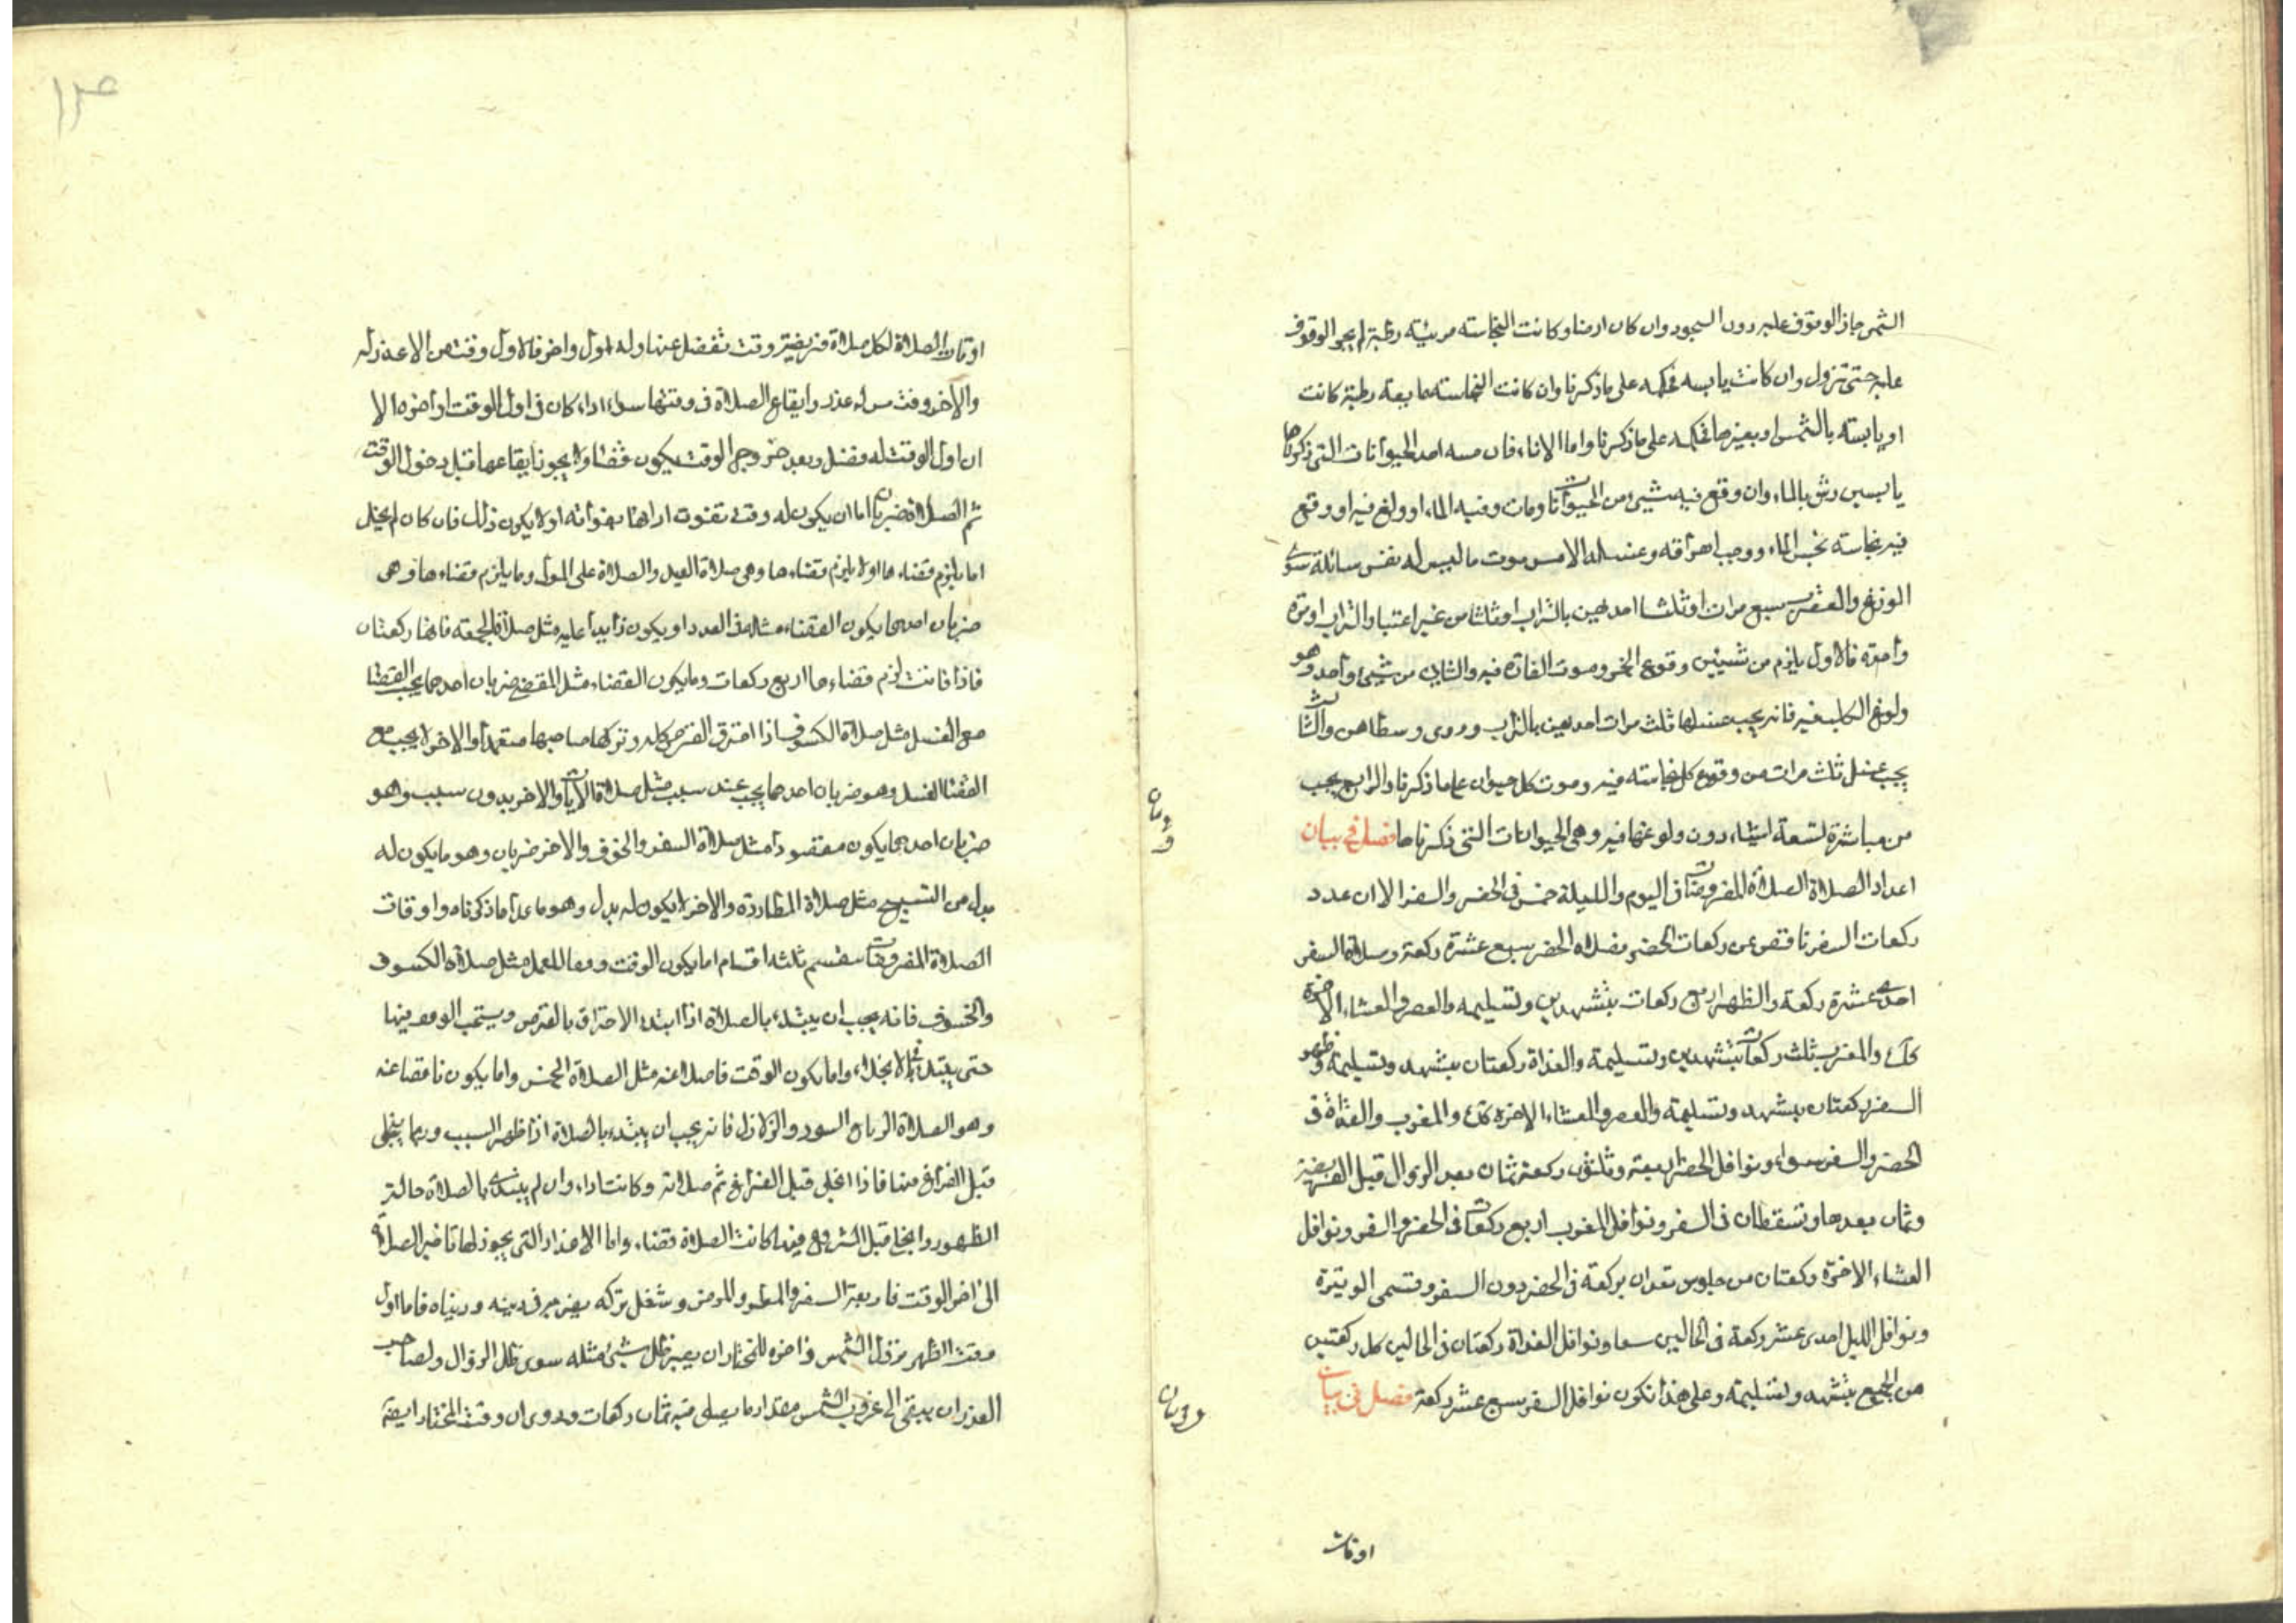 الشمس جاز الوقوف عليه دون السجود وان كان ارضا وكانت النجاسته مرئيته رطبة لم يجز الوقوف
عليه حتى تزول وان كانت يابسه فحكمه على ما ذكرنا وان كانت النجاسته مايعته رطبة كانت
او يابسته بالشمس او بغيرها فحكمه على ما ذكرنا واما الاناء فان مسه احد الحيوانات التى ذكرناها
يابسين رش بالماء وان وقع فيه شيئ من الحيوانات ومات وفيه الماء او ولغ فيه او وقع
فيه نجاسته نجس الماء ووجب اهراقه وغسله الا من موت ما ليس له نفس سائلة سوى
الوزغ والعقرب سبع مرات او ثلثا احديهن بالتراب او ثلثا من غير اعتبار التراب او مرة
واحدة فالاول يلزم من شيئين وقوع الخمر وموت الفارة فيه والثانى من شيئ واحد وهو
ولوغ الكلب فيه فانه يجب غسلها ثلث مرات احديهن بالتراب وروى وسطاهن والثالث
يجب غسل ثلث مرات من وقوع كل نجاسته فيه وموت كل حيوان على ما ذكرنا والرابع يجب
من مباشرة تسعة اشياء دون ولوغها فيه وهى الحيوانات التى ذكرناها فصل فى بيان
اعداد الصلاة الصلاة المفروضات فى اليوم والليلة خمس فى الحضر والسفر الا ان عدد
ركعات السفر ناقص عن ركعات الحضر فصلاة الحضر سبع عشرة ركعة وصلاة السفر
احدى عشرة ركعة والظهر اربع ركعات بتشهدين وتسليمه والعصر والعشاء الاخرة
كذلك والمغرب ثلث ركعات بتشهدين وتسليمة والغداة ركعتان بتشهد وتسليمة وظهر
السفر ركعتان بتشهد وتسليمة والعصر والعشاء الاخرة كذلك والمغرب والغداة فى
الحضر والسفر سواء ونوافل الحضر اربعة وثلثون ركعة ثمان بعد الزوال قبل الفريضة
وثمان بعدها وتسقطان فى السفر ونوافل المغرب اربع ركعات فى الحضر والسفر ونوافل
العشاء الاخرة ركعتان من جلوس تعدان بركعة فى الحضر دون السفر وتسمى الوتيرة
ونوافل الليل احدى عشر ركعة فى الحالين معا ونوافل الغداة ركعتان فى الحالين كل ركعتين
من الجميع بتشهد وتسليمة وعلى هذا تكون نوافل السفر سبع عشر ركعة فصل فى بيان
اوقات
اوقات الصلاة لكل صلاة فريضة وقت تفضل عنها وله اول واخر فالاول وقت من لا عذر له
والاخر وقت من له عذر وايقاع الصلاة فى وقتها سواء اداء كان فى اول الوقت او اخره الا
ان اول الوقت له فضل وبعد خروج الوقت يكون قضاء ولا يجوز ايقاعها قبل دخول الوقت
ثم الصلاة ضربان اما ان يكون له وقت تفوت اداها بفواته او لا يكون ذلك فان كان لم يخل
اما يلزم قضاءها او لا يلزم قضاءها وهى صلاة العيد والصلاة على الموتى وما يلزم قضاءها فهى
ضربان احدهما يكون القضاء مثله فى العدد او يكون زايدا عليه مثل صلاة الجمعته فانها ركعتان
فاذا فاتت لزم قضاءها اربع ركعات وما يكون القضاء مثل المقضى ضربان احدهما يجب القضاء
مع الغسل مثل صلاة الكسوف اذا احترق القرص كله وتركها صاحبها متعمدا والاخر لا يجب مع
القضاء الغسل وهو ضربان احدهما يجب عند سبب مثل صلاة الايات والاخر بدون سبب وهو
ضربان احدهما يكون مقصودا مثل صلاة السفر والخوف والاخر ضربان وهو ما يكون له
بدل من التسبيح مثل صلاة المطاردة والاخر لا يكون له بدل وهو ما عدا ما ذكرناه واوقات
الصلاة المفروضات ينقسم ثلثه اقسام اما يكون الوقت وفقا للعمل مثل صلاة الكسوف
والخسوف فانه يجب ان يبتدء بالصلاة اذا ابتداء الاحتراق بالقرص ويستحب الوقوف فيها
حتى يبتدء فى الانجلاء واما يكون الوقت فاضلا عنه مثل الصلاة الخمس واما يكون ناقصا عنه
وهو الصلاة الرياح السود والزلازل فانه يجب ان يبتدء بالصلاة اذا ظهر السبب وربما ينجلى
قبل الفراغ منها فاذا انجلى قبل الفراغ تم صلاته وكانت اداء وان لم يبتدى بالصلاة حالة
الظهور وانجلى قبل الشروع فيها كانت الصلاة قضاء واما الاعذار التى يجوز لها تاخير الصلاة
الى اخر الوقت فاربعة السفر والمطر والمرض وشغل تركه يضر به فى دينه ودنياه فاما اول
وقت الظهر زوال الشمس واخره للمختار ان يصير ظل شيئ مثله سوى ظل الزوال ولصاحب
العذر ان يبقى الى غروب الشمس مقدار ما يصلى فيه ثمان ركعات وروى ان وقت المختار ايضا